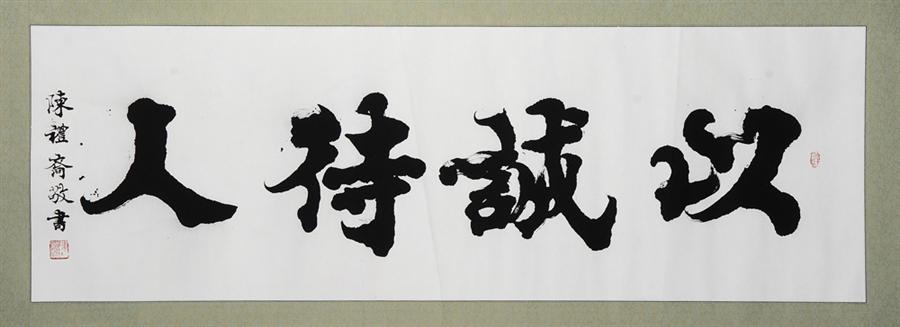 以誠待人
陳禮裔敬書